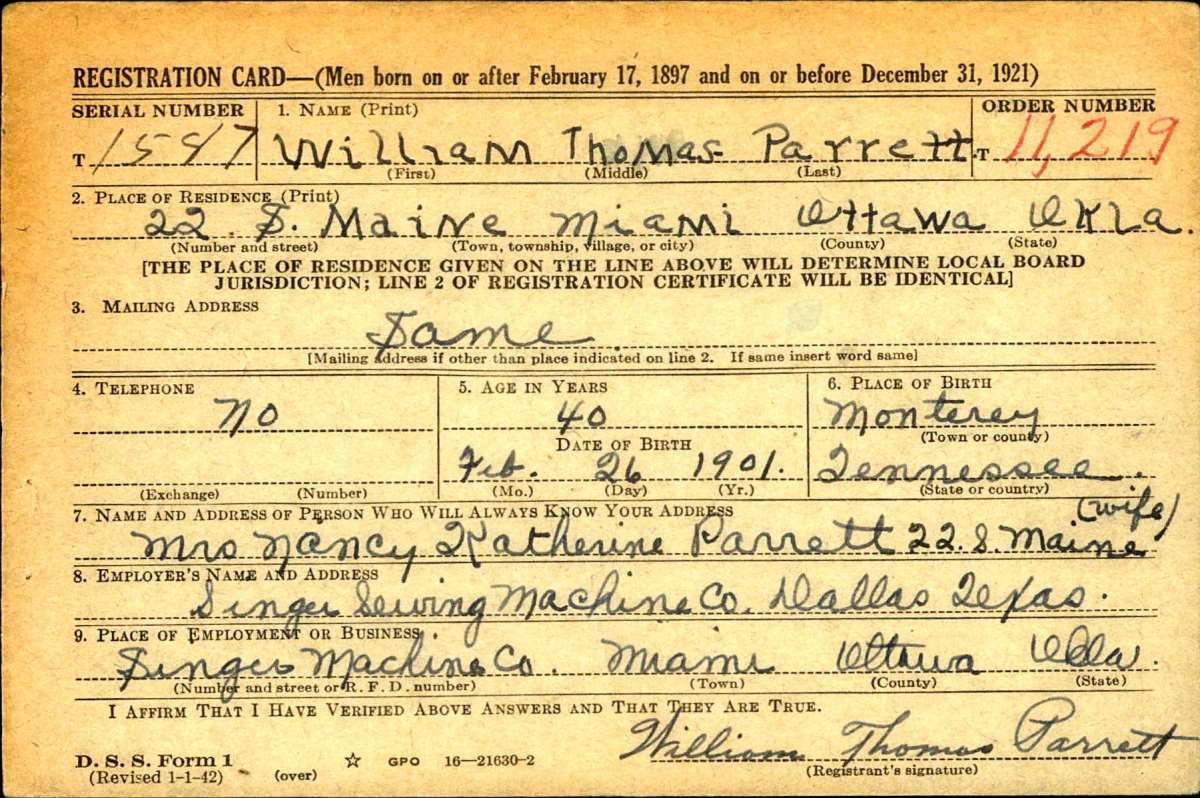 REGISTRATION CARD—(Men born on or after February 17, 1897 and on or before December 31, 1921)
SERIAL NUMBER 1. NAME (Print) ORDER NUMBER
T 1547 William Thomas Parrett T 11,219
(First) (Middle) (Last)
2. PLACE OF RESIDENCE (Print)
22 S. Maine Miami Ottawa Okla.
(Number and street) (Town, township, village, or city) (County) (State)
[THE PLACE OF RESIDENCE GIVEN ON THE LINE ABOVE WILL DETERMINE LOCAL BOARD
JURISDICTION; LINE 2 OF REGISTRATION CERTIFICATE WILL BE IDENTICAL]
3. MAILING ADDRESS
Same
[Mailing address if other than place indicated on line 2. If same insert word same]
4. TELEPHONE 5. AGE IN YEARS 6. PLACE OF BIRTH
No 40 Monterey
DATE OF BIRTH (Town or county)
Feb. 26 1901. Tennessee.
(Exchange) (Number) (Mo.) (Day) (Yr.) (State or country)
7. NAME AND ADDRESS OF PERSON WHO WILL ALWAYS KNOW YOUR ADDRESS (wife)
Mrs Nancy Katherine Parrett 22. S. Maine
8. EMPLOYER'S NAME AND ADDRESS
Singer Sewing Machine Co. Dallas Texas.
9. PLACE OF EMPLOYMENT OR BUSINESS
Singer Machine Co. Miami Ottawa Okla.
(Number and street or R. F. D. number) (Town) (County) (State)
I AFFIRM THAT I HAVE VERIFIED ABOVE ANSWERS AND THAT THEY ARE TRUE.
William Thomas Parrett
D. S. S. Form 1 ☆ GPO 16—21630-2 (Registrant's signature)
(Revised 1-1-42) (over)